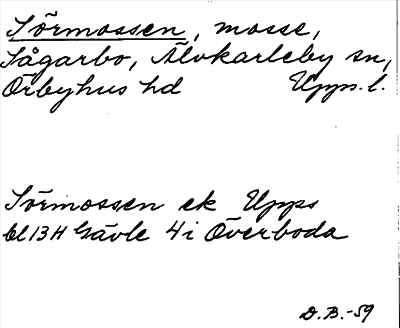 Sörmossen, mosse,
Sågarbo, Älvkarleby sn,
Örbyhus hd Upps. l.
Sörmossen ek Upps
bl 13 H Gävle 4 i Överboda
D. B. -59